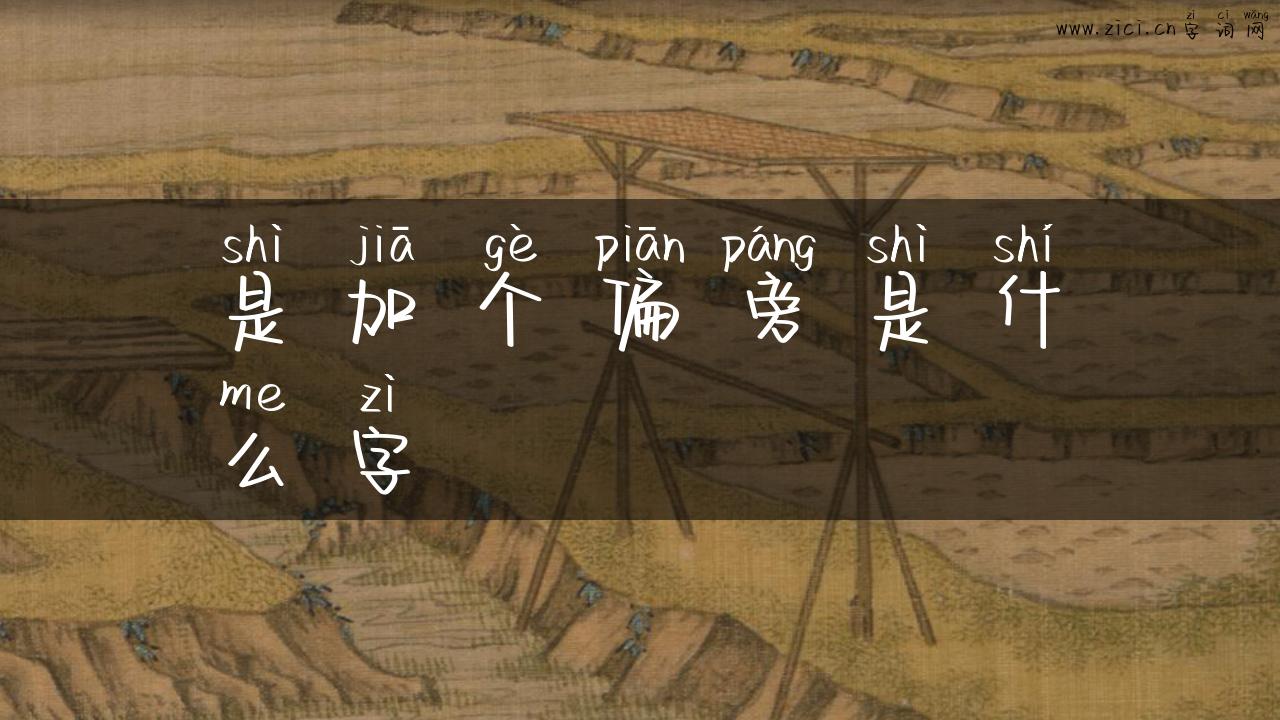 zì cí wǎng
www.zici.cn 字词网
shì jiā gè piān páng shì shí
是加个偏旁是什
me zì
么字